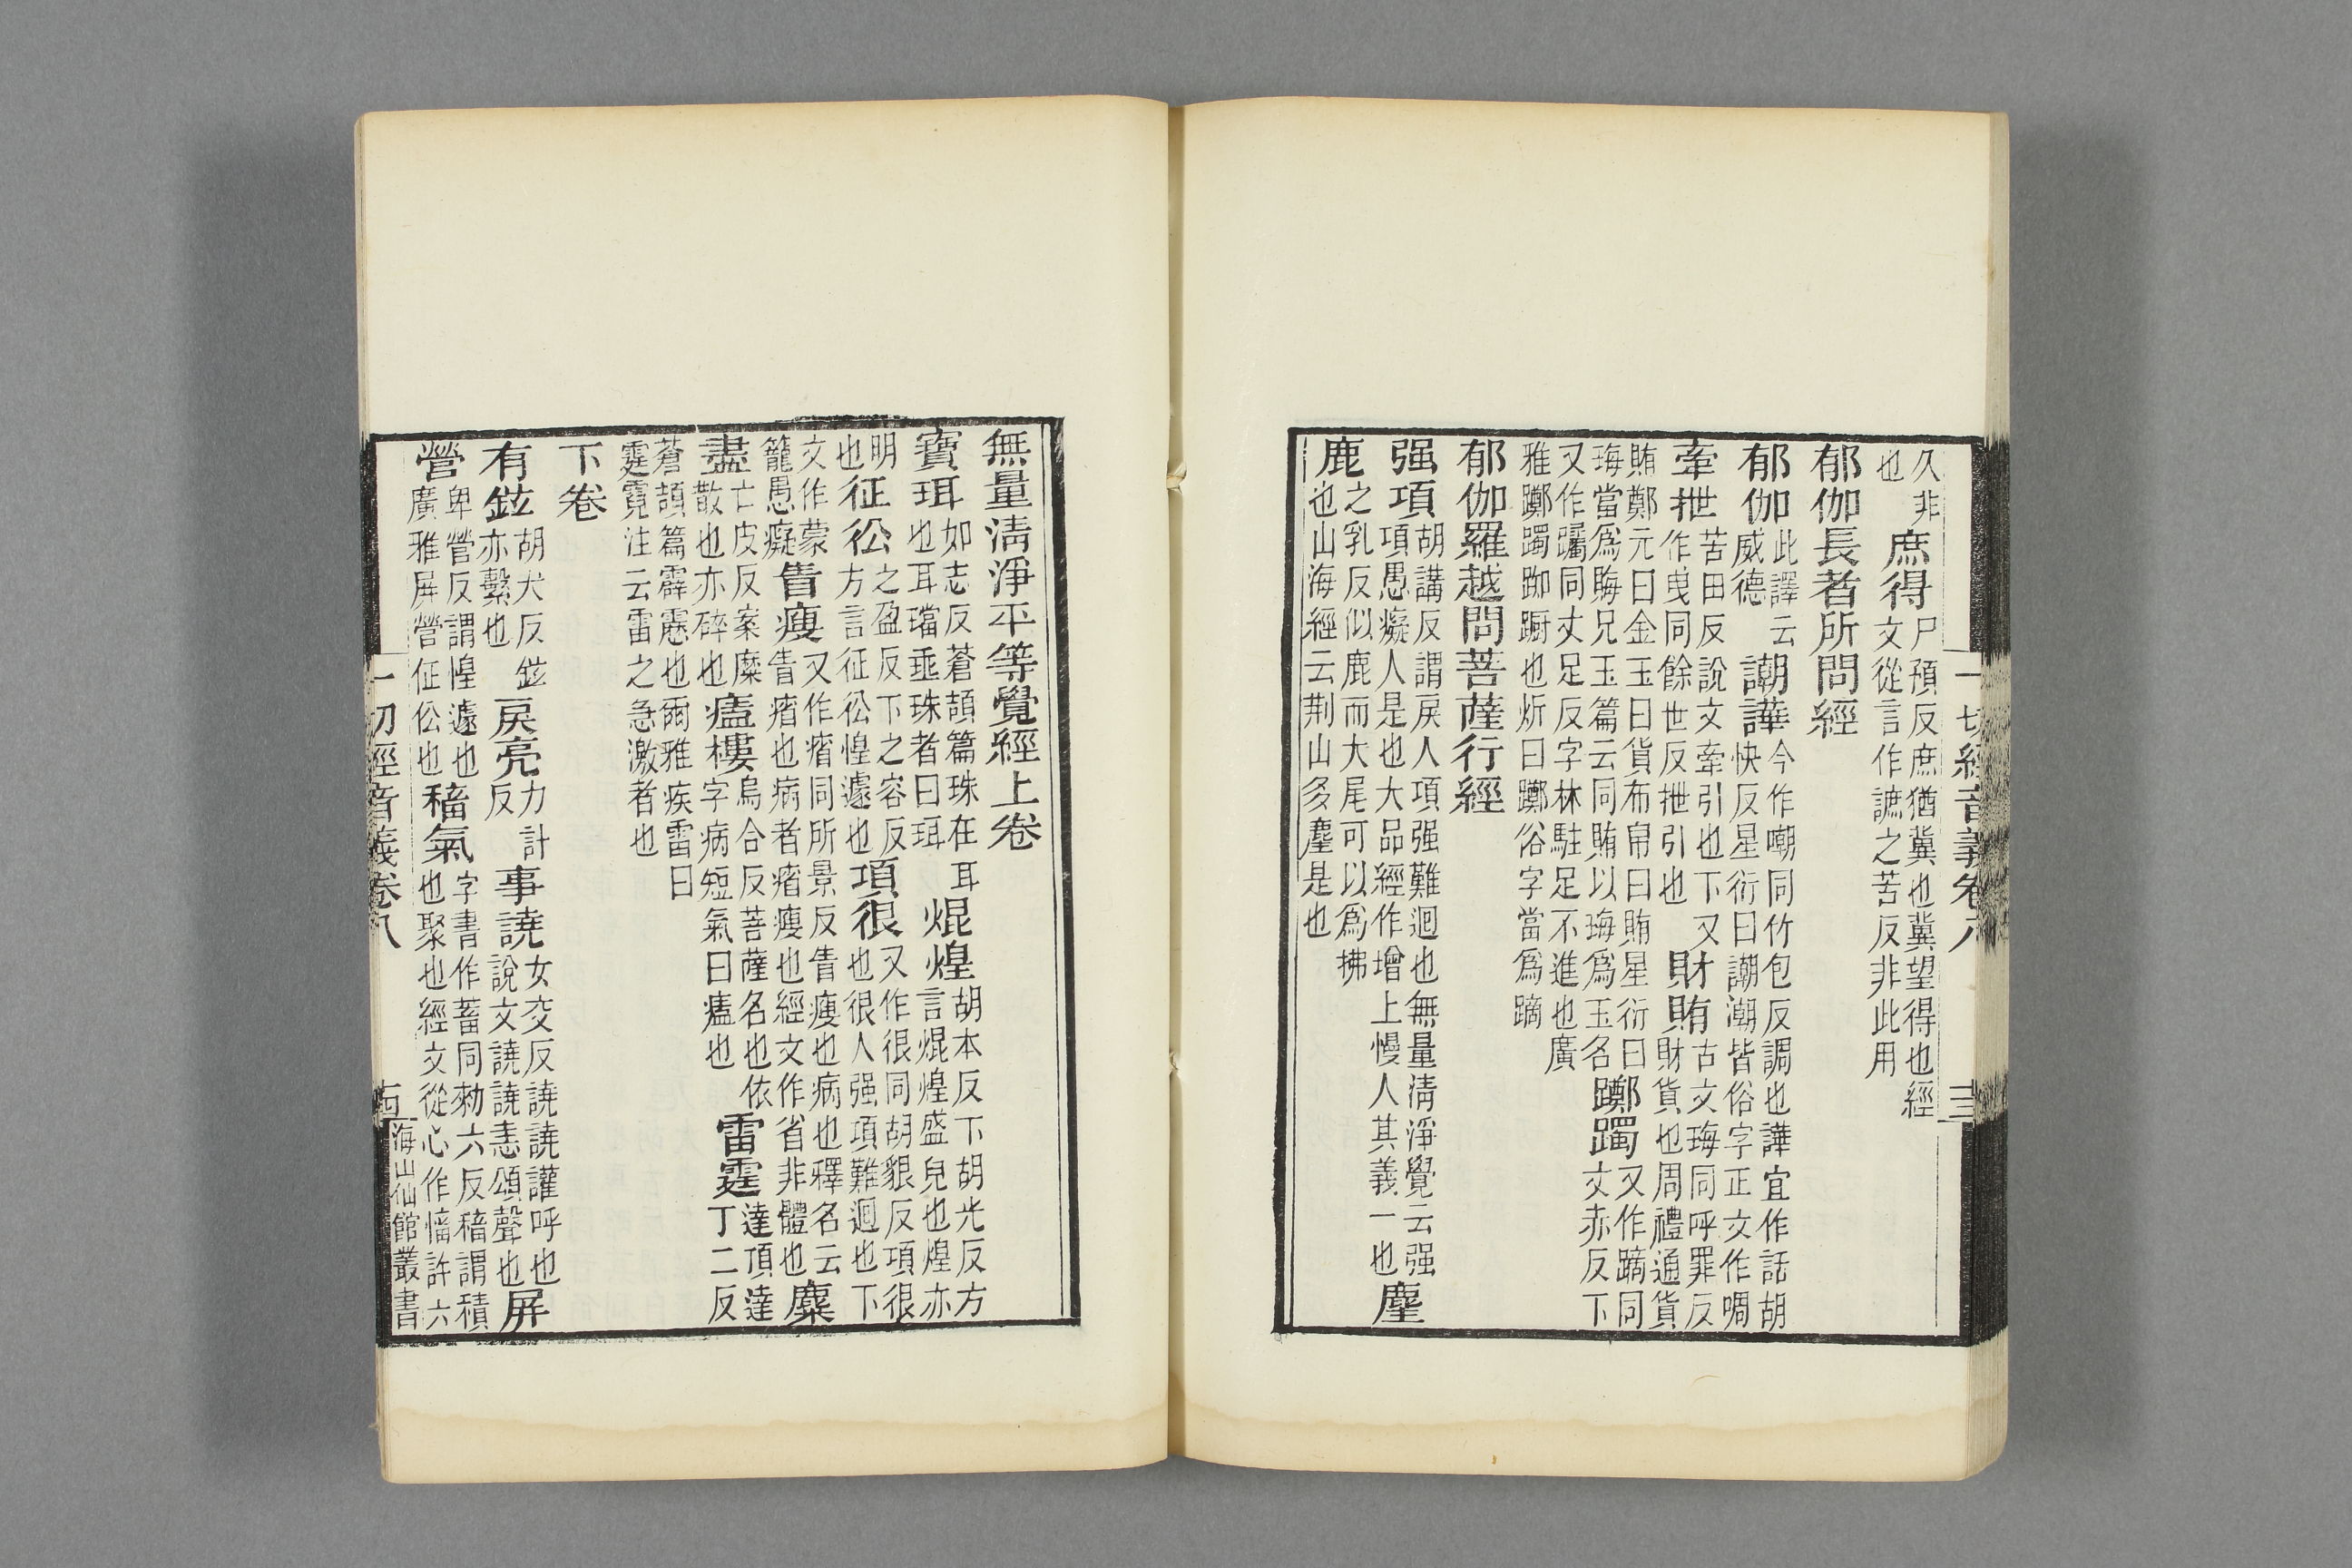 一切經音義卷八
十三
久非
也
庶得
尸預反庶猶冀也冀望得也經
文從言作謶之苦反非此用
郁伽長者所問經
郁伽
此譯云
威德
潮譁
今作嘲同竹包反調也譁宜作話胡
快反星衍曰謿潮皆俗字正文作啁
牽抴
苦田反說文牽引也下又
世作曳同餘世反抴引也
財賄
古文䀲同呼罪反
財貨也周禮通貨
賄鄭元曰金玉曰貨布帛曰賄星衍曰
當爲晦兄玉篇云同賄以爲玉名
躑躅
又作蹢同
文赤反下
又作躅同丈足反字林駐足不進也廣
雅躑躅踟蹰也炘曰躑俗字當爲蹢
郁伽羅越問菩薩行經
强項
胡講反謂戾人項强難迴也無量清淨覺云强
項愚癡人是也大品經作增上慢人其義一也
麈
鹿
之乳反似鹿而大尾可以爲拂
也山海經云荆山多麈是也
無量清淨平等覺經上卷
寶珥
如志反蒼頡篇珠在耳
也耳璫垂珠者曰珥
焜煌
胡本反下胡光反方
言焜煌盛皃也煌亦
明
也
征彸
之盈反下之容反
方言征彸惶遽也
項很
又作很同胡貇反項很
也很人强項難迴也下
文作蒙
籠愚癡
眚瘦
又作㾪同所景反眚瘦也病也釋名云
眚㾪也病者㾪瘦也經文作省非體也
麋
盡
亡皮反案糜
散也亦碎也
瘟樓
烏合反菩薩名也依
字病短氣曰瘟也
雷霆
達頂達
丁二反
蒼頡篇霹靂也爾雅疾雷曰
霆霓注云雷之急激者也
下卷
有鉉
胡犬反鉉
亦繫也
戾亮
力計
反
事譊
女交反譊譊讙呼也
說文譊譊恚頌聲也
屏
營
卑營反謂惶遽也
廣雅屏營征伀也
稸氣
字書作蓄同勑六反稸謂積
也聚也經文從心作慉許六
一切經音義卷八
海山仙館叢書